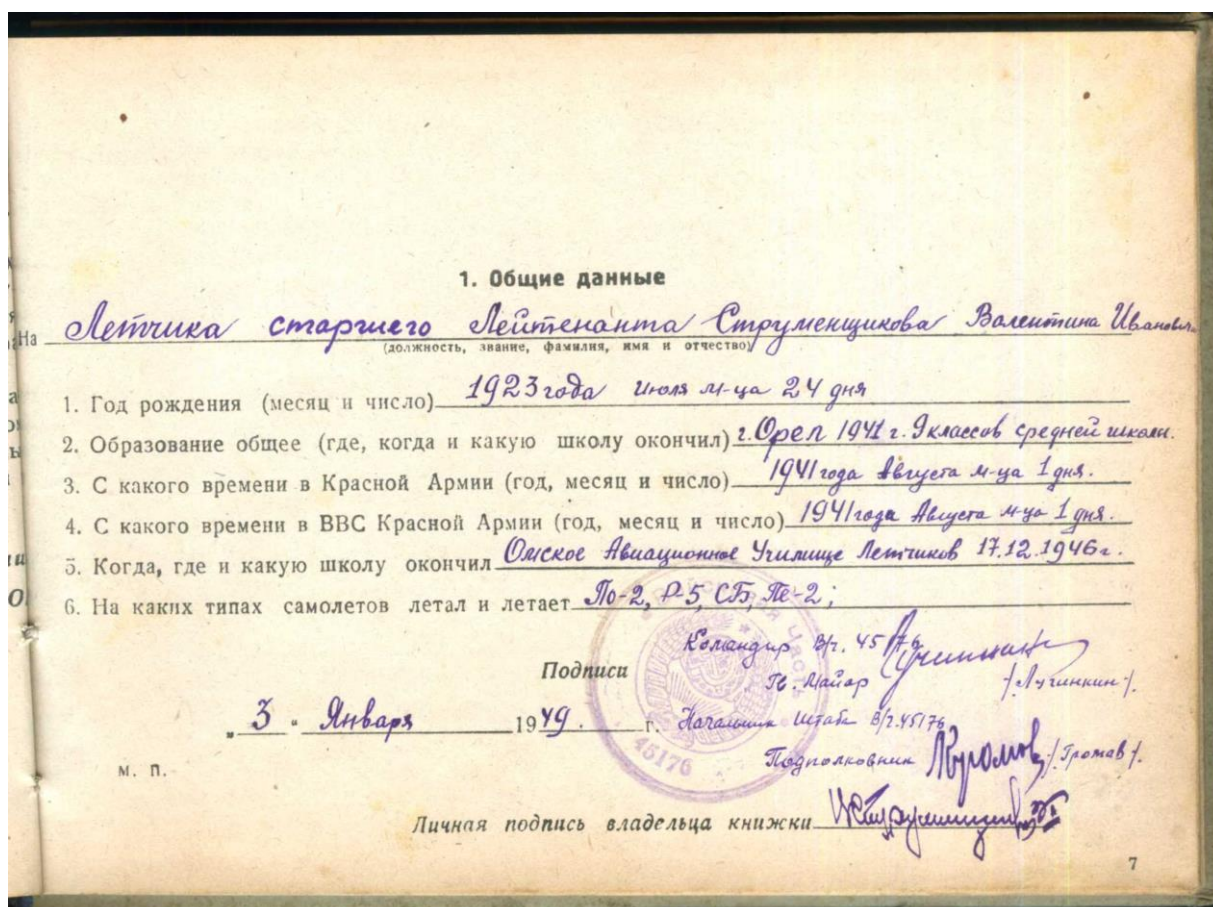 1. Общие данные
На Летчика старшего Лейтенанта Струменщикова Валентина Ивановича
(должность, звание, фамилия, имя и отчество)
1. Год рождения (месяц и число) 1923 года Июля м-ца 24 дня
2. Образование общее (где, когда и какую школу окончил) г. Орел 1941 г. 9 классов средней школы.
3. С какого времени в Красной Армии (год, месяц и число) 1941 года Августа м-ца 1 дня.
4. С какого времени в ВВС Красной Армии (год, месяц и число) 1941 года Августа м-ца 1 дня.
5. Когда, где и какую школу окончил Омское Авиационное Училище Летчиков 17.12.1946 г.
6. На каких типах самолетов летал и летает По-2, Р-5, СБ, Пе-2;
Командир В/ч. 45176
Подписи
Гв. Майор /Лучинкин/.
„3“ Января 1949. г. Начальник Штаба В/ч. 45176
Подполковник /Громов/.
м. п.
45176
Личная подпись владельца книжки
7